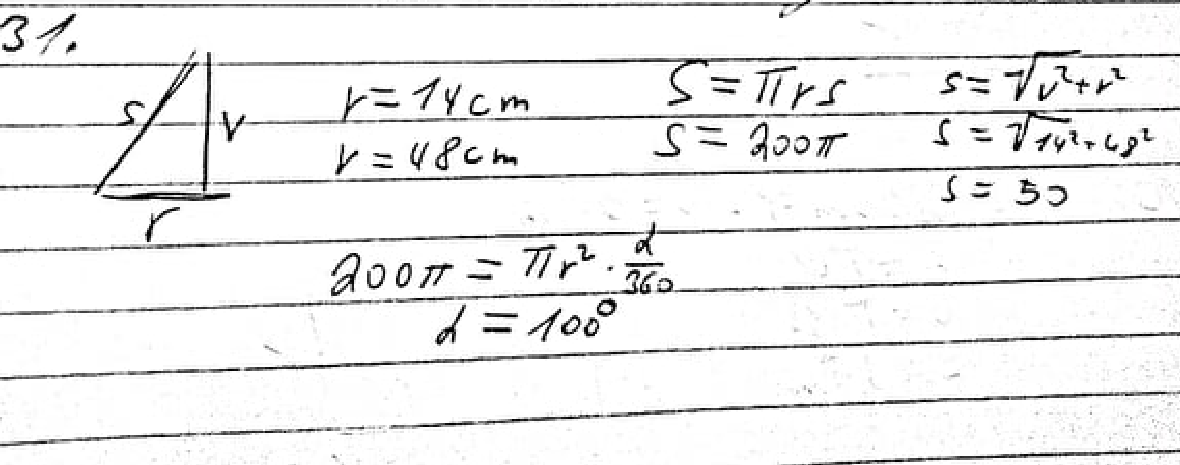 31.
s v r
r = 14 cm
v = 48 cm
S = πrs
S = 200π
s = √v²+r²
s = √14²+48²
s = 50
200π = πr² · α/360
α = 100°